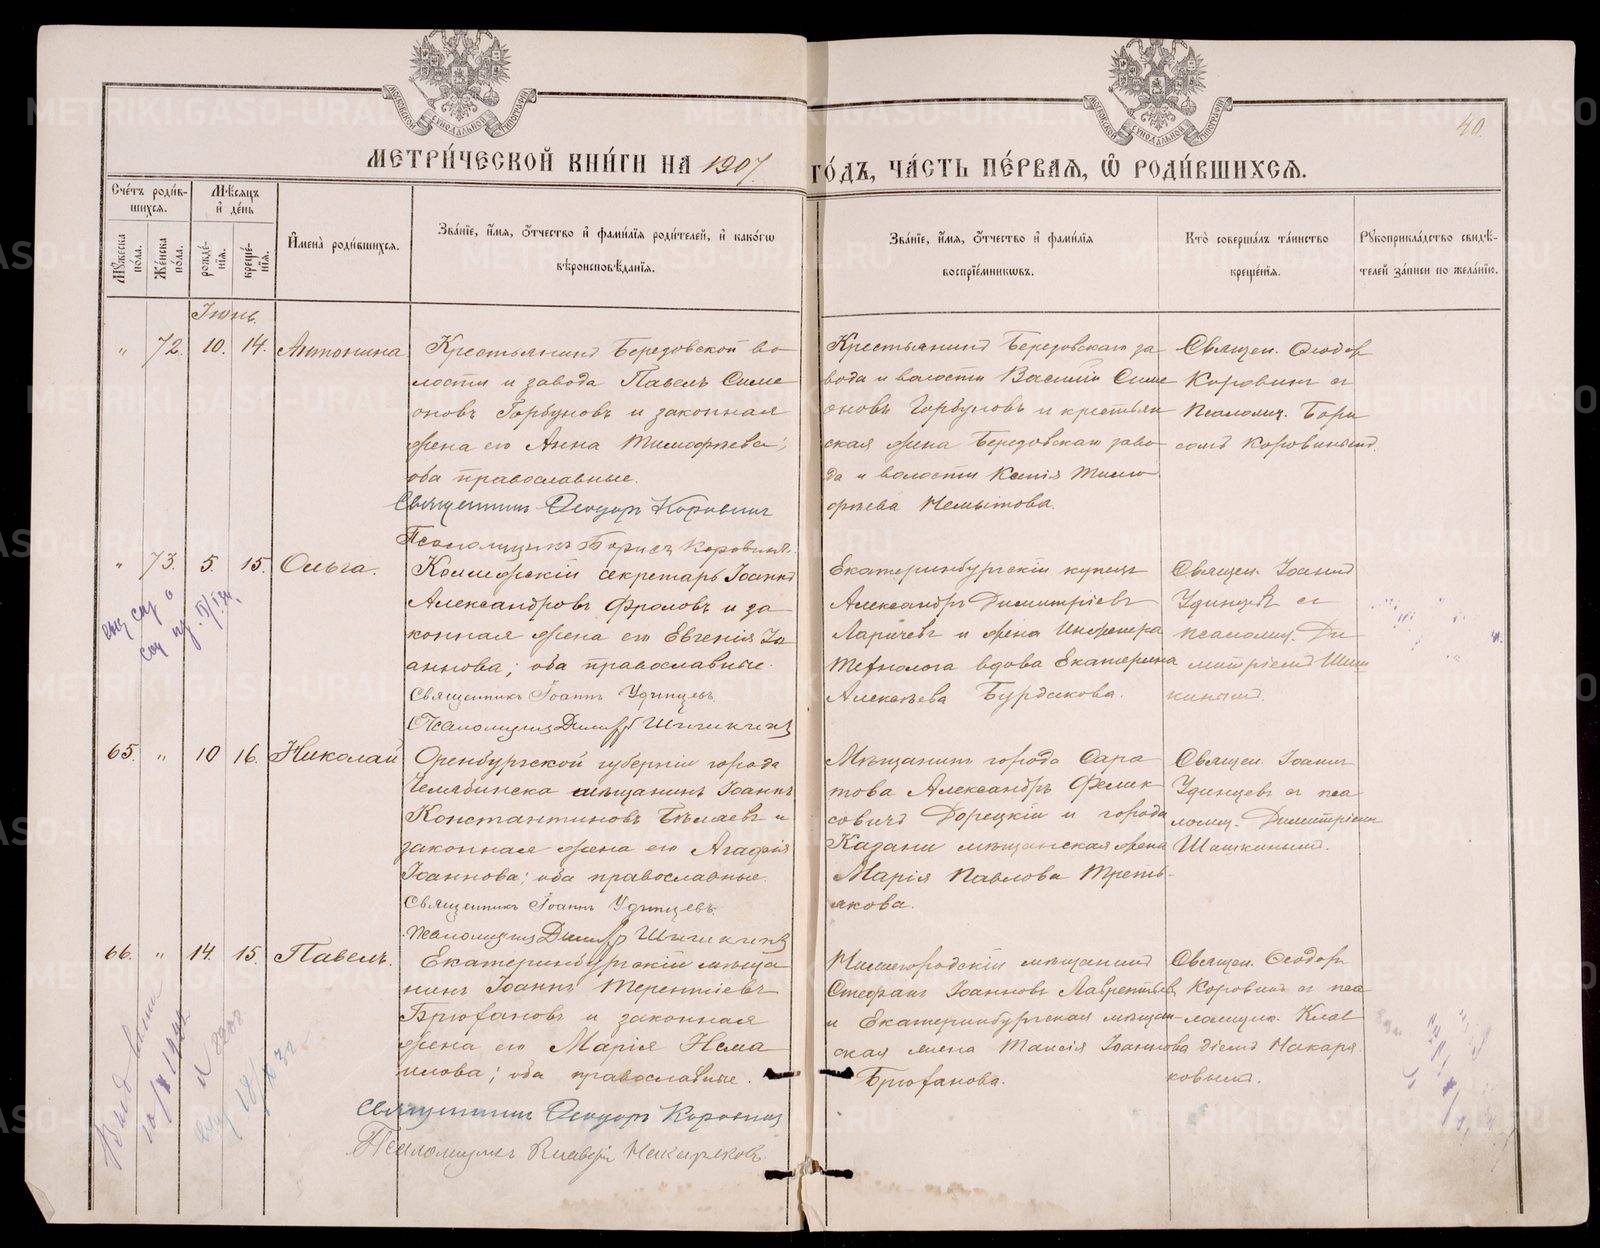 40.
МЕТРИ́ЧЕСКОЙ КНИ́ГИ НА 1907 ГО́ДЪ, ЧА́СТЬ ПЕ́РВАЯ, Ѡ РОДИ́ВШИХСЯ.
Сче́тъ роди́в-
шихся.
Мꙋжеска по́ла.
Же́нска по́ла.
Мѣсяцъ и де́нь
рожде́-
нїя.
креще́-
нїя.
Имена̀ роди́вшихся.
Зва́нїе, и́мя, о́тчество и фами́лїя роди́телей, и како́гѡ
вѣроисповѣ́данїя.
Зва́нїе, и́мя, о́тчество и фами́лїя
воспрїе́мникѡвъ.
Кто̀ соверша́лъ та́инство
креще́нїя.
Рꙋкоприкла́дство свидѣ́-
телей за́писи по жела́нїю.
Іюнь.
„ 72. 10. 14. Антонина
Крестьянинъ Березовской во-
лости и завода Павелъ Симе
оновъ Горбуновъ и законная
жена его Анна Тимофеева;
оба православные.
Священникъ Ѳеодоръ Коровинъ
Псаломщикъ Борисъ Коровинъ.
Крестьянинъ Березовскаго за
вода и волости Василій Симе
оновъ Горбуновъ и крестьян
ская жена Березовскаго заво
да и волости Ксенія Тимо
фѣева Немытова.
Священ. Ѳеодоръ
Коровинъ съ
псаломщ. Бори
сомъ Коровинымъ.
„ 73. 5. 15. Ольга.
Коллежскій секретарь Іоаннъ
Александровъ Фроловъ и за
конная жена его Евгенія Іо
аннова; оба православные.
Священникъ Іоаннъ Удинцевъ
Псаломщикъ Димитр Шишкинъ
Екатеринбургскій купецъ
Александръ Димитріевъ
Ларичевъ и жена Инженера
технолога вдова Екатерина
Алексѣева Бурдакова.
Священ. Іоаннъ
Удинцевъ съ
псаломщ. Ди
митріемъ Шиш
кинымъ.
65. „ 10 16. Николай
Оренбургской губерніи города
Челябинска мѣщанинъ Іоаннъ
Константиновъ Бѣлаевъ и
законная жена его Агафія
Іоаннова; оба православные.
Священникъ Іоаннъ Удинцевъ
Псаломщикъ Димитр Шишкинъ
Мѣщанинъ города Сара
това Александръ Феликсовичъ
Дорецкій и города
Казани мѣщанская жена
Марія Павлова Треть-
якова.
Священ. Іоаннъ
Удинцевъ съ пса
ломщ. Димитріемъ
Шишкинымъ.
66. „ 14. 15. Павелъ.
Екатеринбургскій мѣща
нинъ Іоаннъ Терентіевъ
Брюхановъ и законная
жена его Марія Изма
илова; оба православные.
Священникъ Ѳеодоръ Коровинъ
Псаломщикъ Клавдій Макаровъ
Нижегородскій мѣщанинъ
Стефанъ Іоанновъ Лаврентьевъ
и Екатеринбургская мѣщан-
ская жена Таисія Іоаннова
Брюханова.
Священ. Ѳеодоръ
Коровинъ съ пса
ломщик. Клав
діемъ Макаро
вымъ.
METRIKI.GASO-URAL.RU